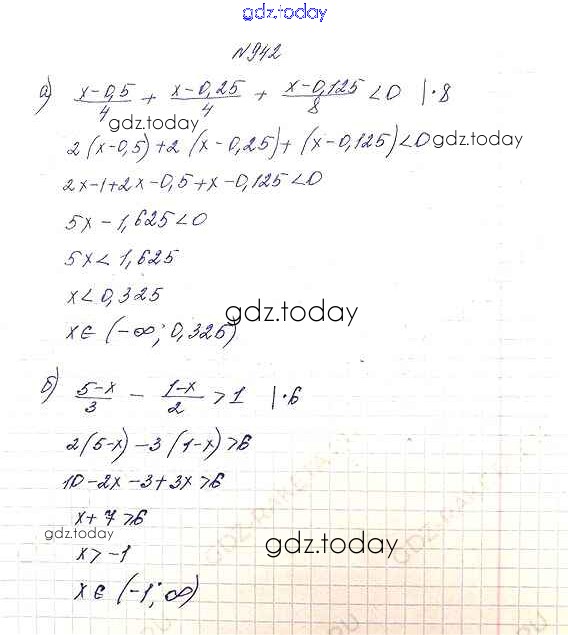 gdz.today
N942
а) x-0,5/4 + x-0,25/4 + x-0,125/8 <0 |·8
gdz.today
2(x-0,5)+2(x-0,25)+(x-0,125)<0 gdz.today
2x-1+2x-0,5+x-0,125<0
5x-1,625<0
5x<1,625
x<0,325
gdz.today
x∈(-∞; 0,325)
б) 5-x/3 - 1-x/2 >1 |·6
2(5-x)-3(1-x)>6
10-2x-3+3x>6
x+7>6
gdz.today
x>-1
gdz.today
x∈(-1; ∞)